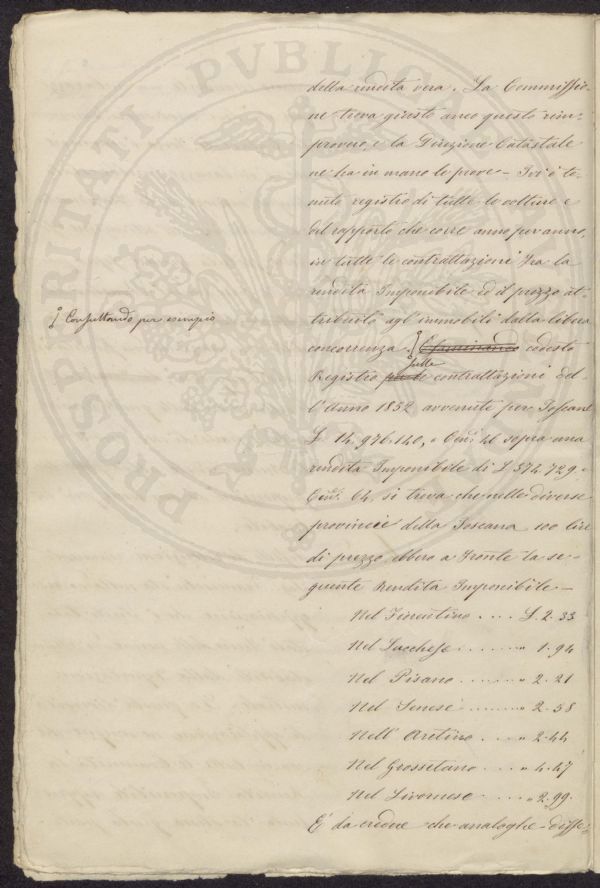 PROSPERITATI PVBLICAE
della rendita vera. La Commissio-
ne trova giusto anco questo rim-
provero, e la Direzione Catastale
ne ha in mano le prove – Ivi è te-
nuto registro di tutte le volture e
del rapporto che corre anno per anno,
in tutte le contrattazioni fra la
rendita Imponibile ed il prezzo at-
tribuito agl'immobili dalla libera
concorrenza. Esaminando codesto
Consultando per esempio
Registro sulle contrattazioni del-
l'Anno 1852 avvenute per Toscane
L. 14.976.140, e Cen: 46 sopra una
rendita Imponibile di L 374.729 e
Cen: 64 si trova che nelle diverse
provincie della Toscana 100 lire
di prezzo ebbero a fronte la se-
guente Rendita Imponibile –
Nel Fiorentino .... L. 2.33
Nel Lucchese ...... " 1.94
Nel Pisano ...... " 2.21
Nel Senese ...... " 2.58
Nell'Aretino .... " 2.44
Nel Grossetano .... " 4.47
Nel Livornese .... " 2.99.
E' da credere che analoghe diffe-